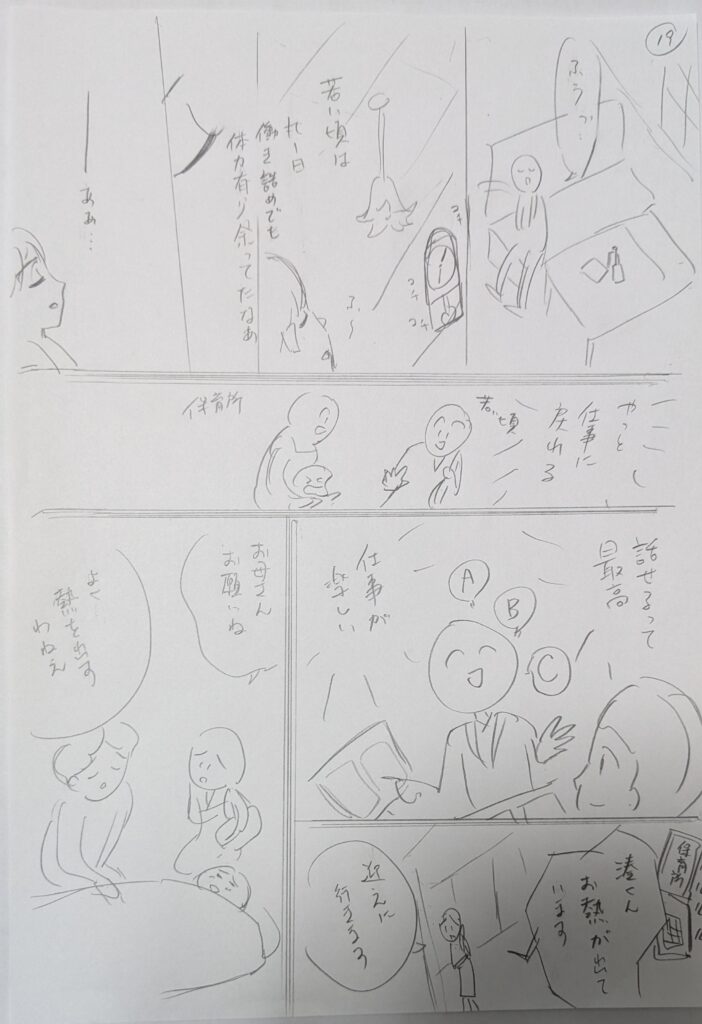 19
ふうっ…
コチ
コチ
コチ
ふ〜
若い頃は
丸一日
働き詰めでも
体力有り余ってたなぁ
あぁ…
やっと
仕事に
戻れる
若い頃
保育所
話せるって
最高
A
B
C
仕事が
楽しい
保育所
湊くん
お熱が出て
います
迎えに
行きます
お母さん
お願いね
よく
熱を出す
わねぇ